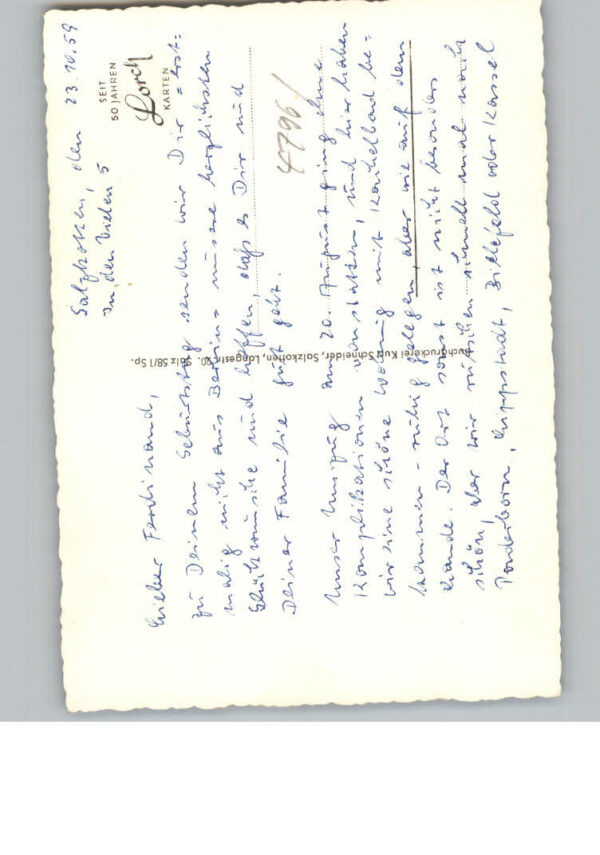 Salzkotten, den 23.10.59
In den Vielen 5
SEIT
50 JAHREN
Lorch
KARTEN
Lieber Ferdinand,
zu Deinem Geburtstag senden wir Dir - erst-
malig nicht aus Berlin - unsere herzlichsten
Glückwünsche und hoffen, daß es Dir und
Deiner Familie gut geht.
4796/
Unser Umzug am 20. August ging ohne
Komplikationen vonstatten, und hier haben
wir eine schöne Wohnung mit Kachelbad be-
kommen - ruhig gelegen, aber wie auf dem
Lande. Der Ort sonst ist nicht besonders
schön, aber wir rutschen schnell mal nach
Paderborn, Lippstadt, Bielefeld oder Kassel
Buchdruckerei Kurt Schneider, Salzkotten, Langestr. 20. Salz 58/1 Sp.